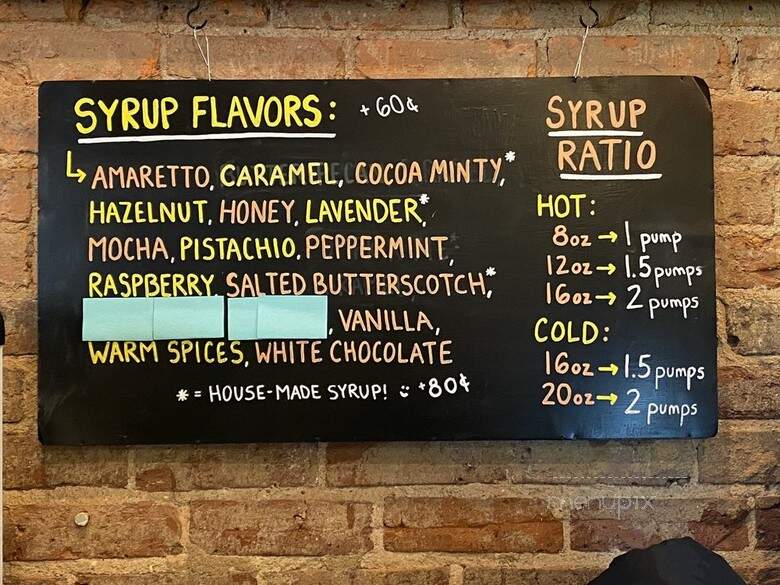 SYRUP FLAVORS: +60¢
AMARETTO, CARAMEL, COCOA MINTY,*
HAZELNUT, HONEY, LAVENDER*,
MOCHA, PISTACHIO, PEPPERMINT,
RASPBERRY, SALTED BUTTERSCOTCH,*
, VANILLA,
WARM SPICES, WHITE CHOCOLATE
* = HOUSE-MADE SYRUP! +80¢
SYRUP
RATIO
HOT:
8oz → 1 pump
12oz → 1.5 pumps
16oz → 2 pumps
COLD:
16oz → 1.5 pumps
20oz → 2 pumps
menupix